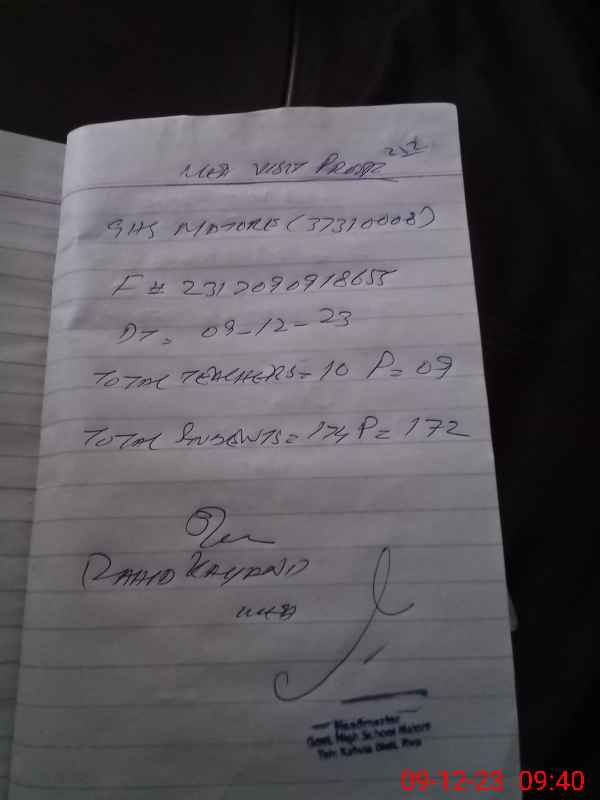 MEA VISIT PROOF
GHS MATORE (37310008)
F # 2312090918655
DT = 09-12-23
TOTAL TEACHERS = 10 P = 09
TOTAL STUDENTS = 174 P = 172
MEA
Headmaster
Govt. High School Matore
Teh: Kahuta Distt. Rwp
09-12-23 09:40